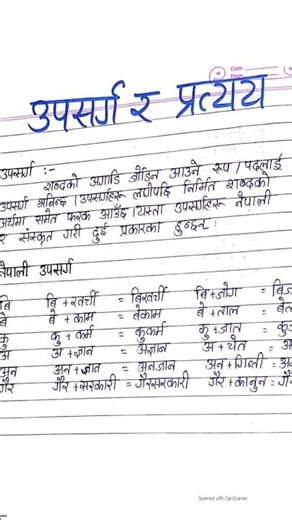 उपसर्ग र प्रत्यय
उपसर्ग :-
शब्दको अगाडि जोडिन आउने रूप / पदलाई
उपसर्ग भनिन्छ । उपसर्गहरू लागेपछि निर्मित शब्दको
अर्थमा समेत फरक आउँछ । यस्ता उपसर्गहरू नेपाली
र संस्कृत गरी दुई प्रकारका हुन्छन् :
नेपाली उपसर्ग
बि बि + रर्खी = बिरर्खी बि + जोग =
बे बे + काम = बेकाम बे + ताल =
कु कु + कर्म = कुकर्म कु + जात =
अ अ + ज्ञान = अज्ञान अ + चेत =
अन अन + जान = अनजान अन + गिन्ती =
गैर गैर + सरकारी = गैरसरकारी गैर + कानुन =
Scanned with CamScanner